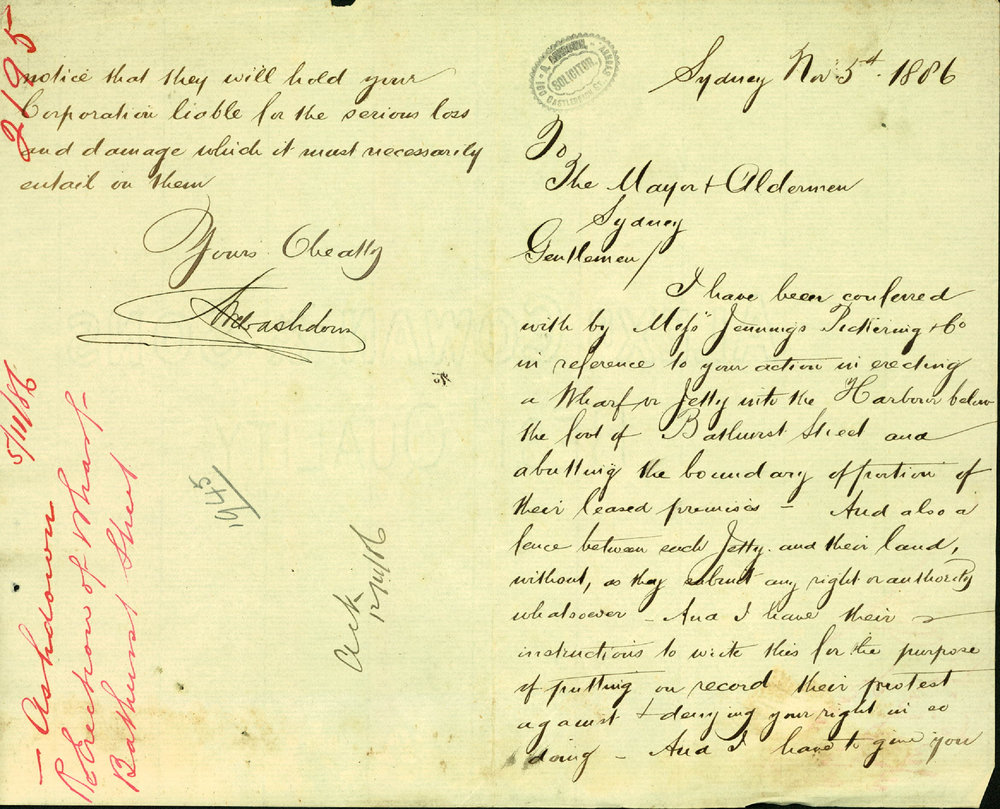 Sydney Nov 5th 1886
To
The Mayor & Aldermen
Sydney
Gentlemen/
I have been conferred
with by Messrs Jennings Pickering & Co
in reference to your action in erecting
a Wharf or Jetty into the Harbour below
the foot of Bathurst Street and
abutting the boundary of portion of
their leased premises – And also a
fence between each Jetty and their land,
without, as they submit any right or authority
whatsoever – And I have their
instructions to write this for the purpose
of putting on record their protest
against & denying your right in so
doing – And I have to give you
notice that they will hold your
Corporation liable for the serious loss
and damage which it must necessarily
entail on them
Yours Obedtly
Ashdown
SOLICITOR
160 CASTLEREAGH ST
2195
5/11/86
– Ashdown
Re Erection of Wharf –
Bathurst Street
1945
Ack
12/11/86